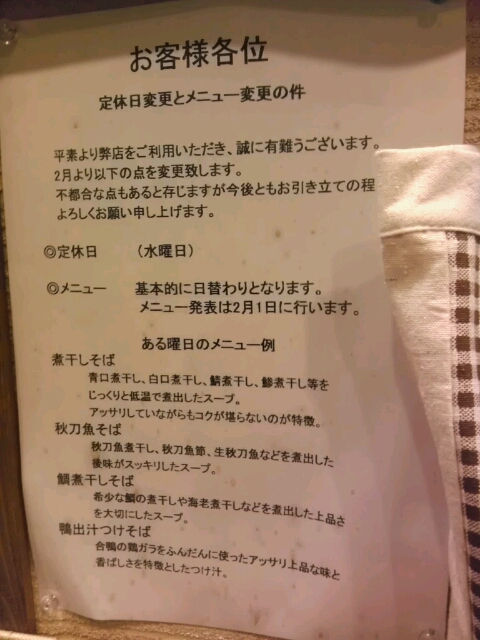 お客様各位
定休日変更とメニュー変更の件
平素より弊店をご利用いただき、誠に有難うございます。
2月より以下の点を変更致します。
不都合な点もあると存じますが今後ともお引き立ての程
よろしくお願い申し上げます。
◎定休日　（水曜日）
◎メニュー　基本的に日替わりとなります。
メニュー発表は2月1日に行います。
ある曜日のメニュー例
煮干しそば
青口煮干し、白口煮干し、鯖煮干し、鯵煮干し等を
じっくりと低温で煮出したスープ。
アッサリしていながらもコクが堪らないのが特徴。
秋刀魚そば
秋刀魚煮干し、秋刀魚節、生秋刀魚などを煮出した
後味がスッキリしたスープ。
鯛煮干しそば
希少な鯛の煮干しや海老煮干しなどを煮出した上品さ
を大切にしたスープ。
鴨出汁つけそば
合鴨の鶏ガラをふんだんに使ったアッサリ上品な味と
香ばしさを特徴としたつけ汁。